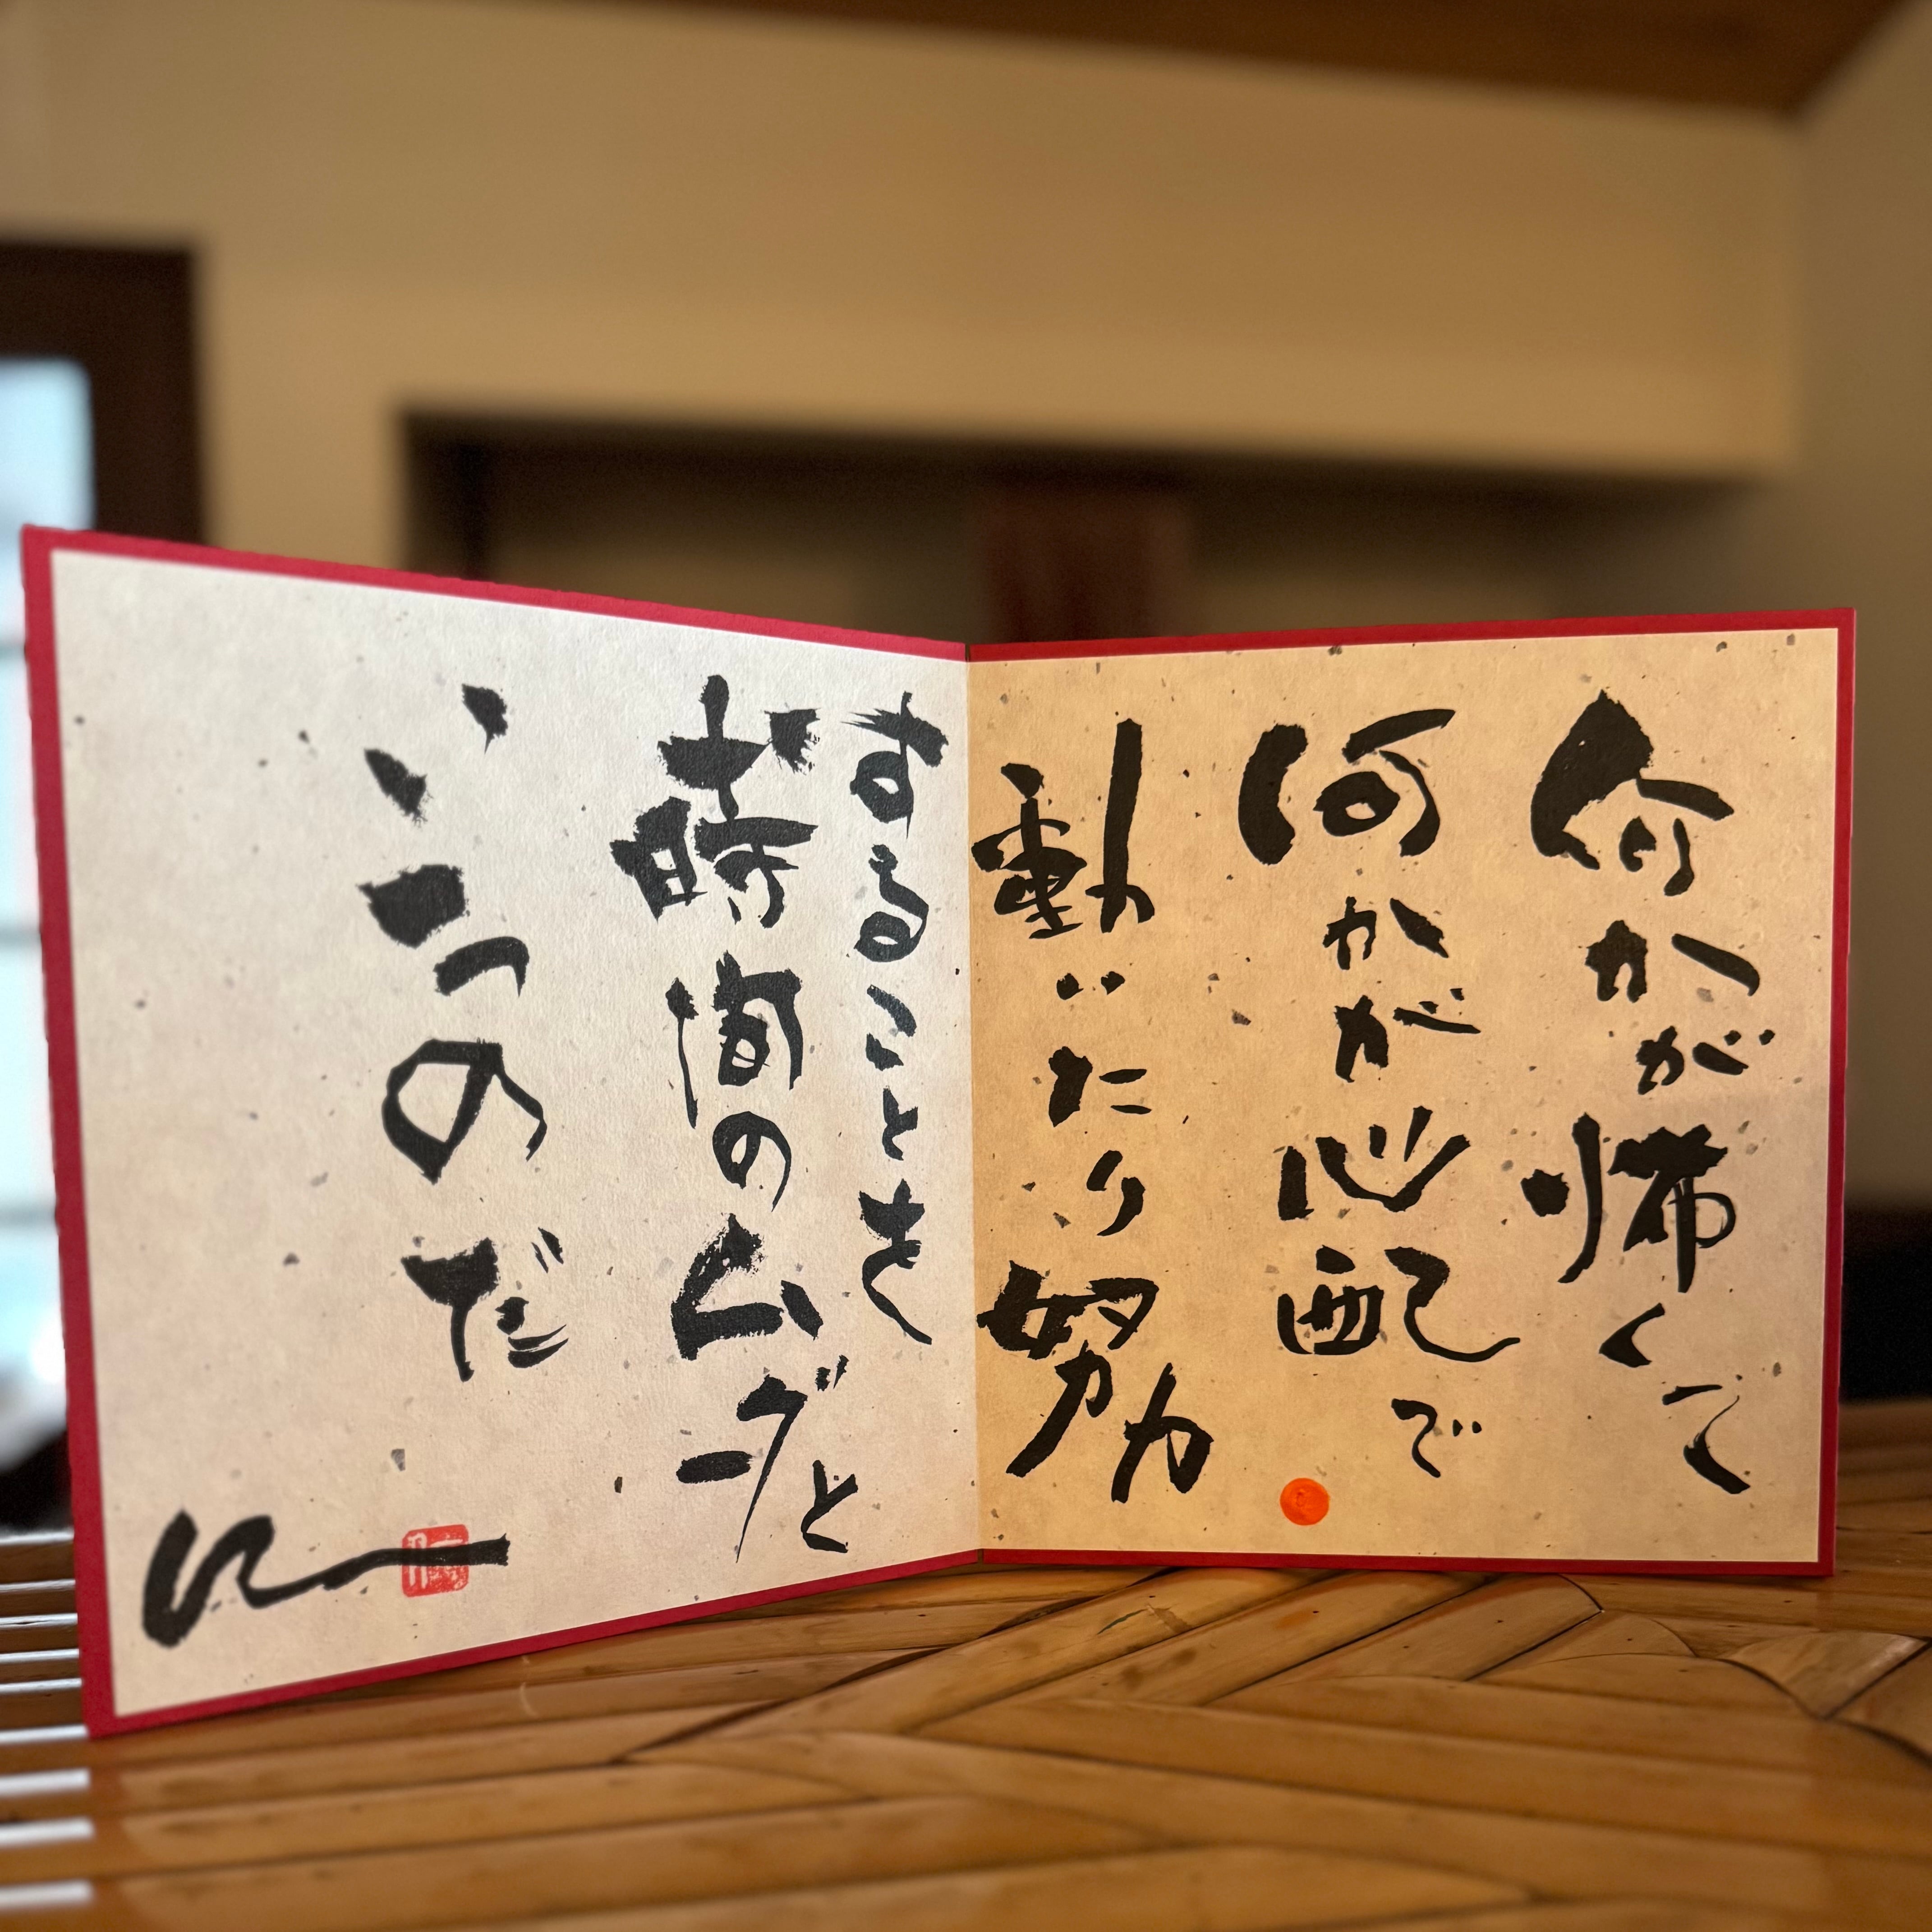 何かが怖くて
何かが心配で
動いたり努力
することを
時間のムダと
いうのだ